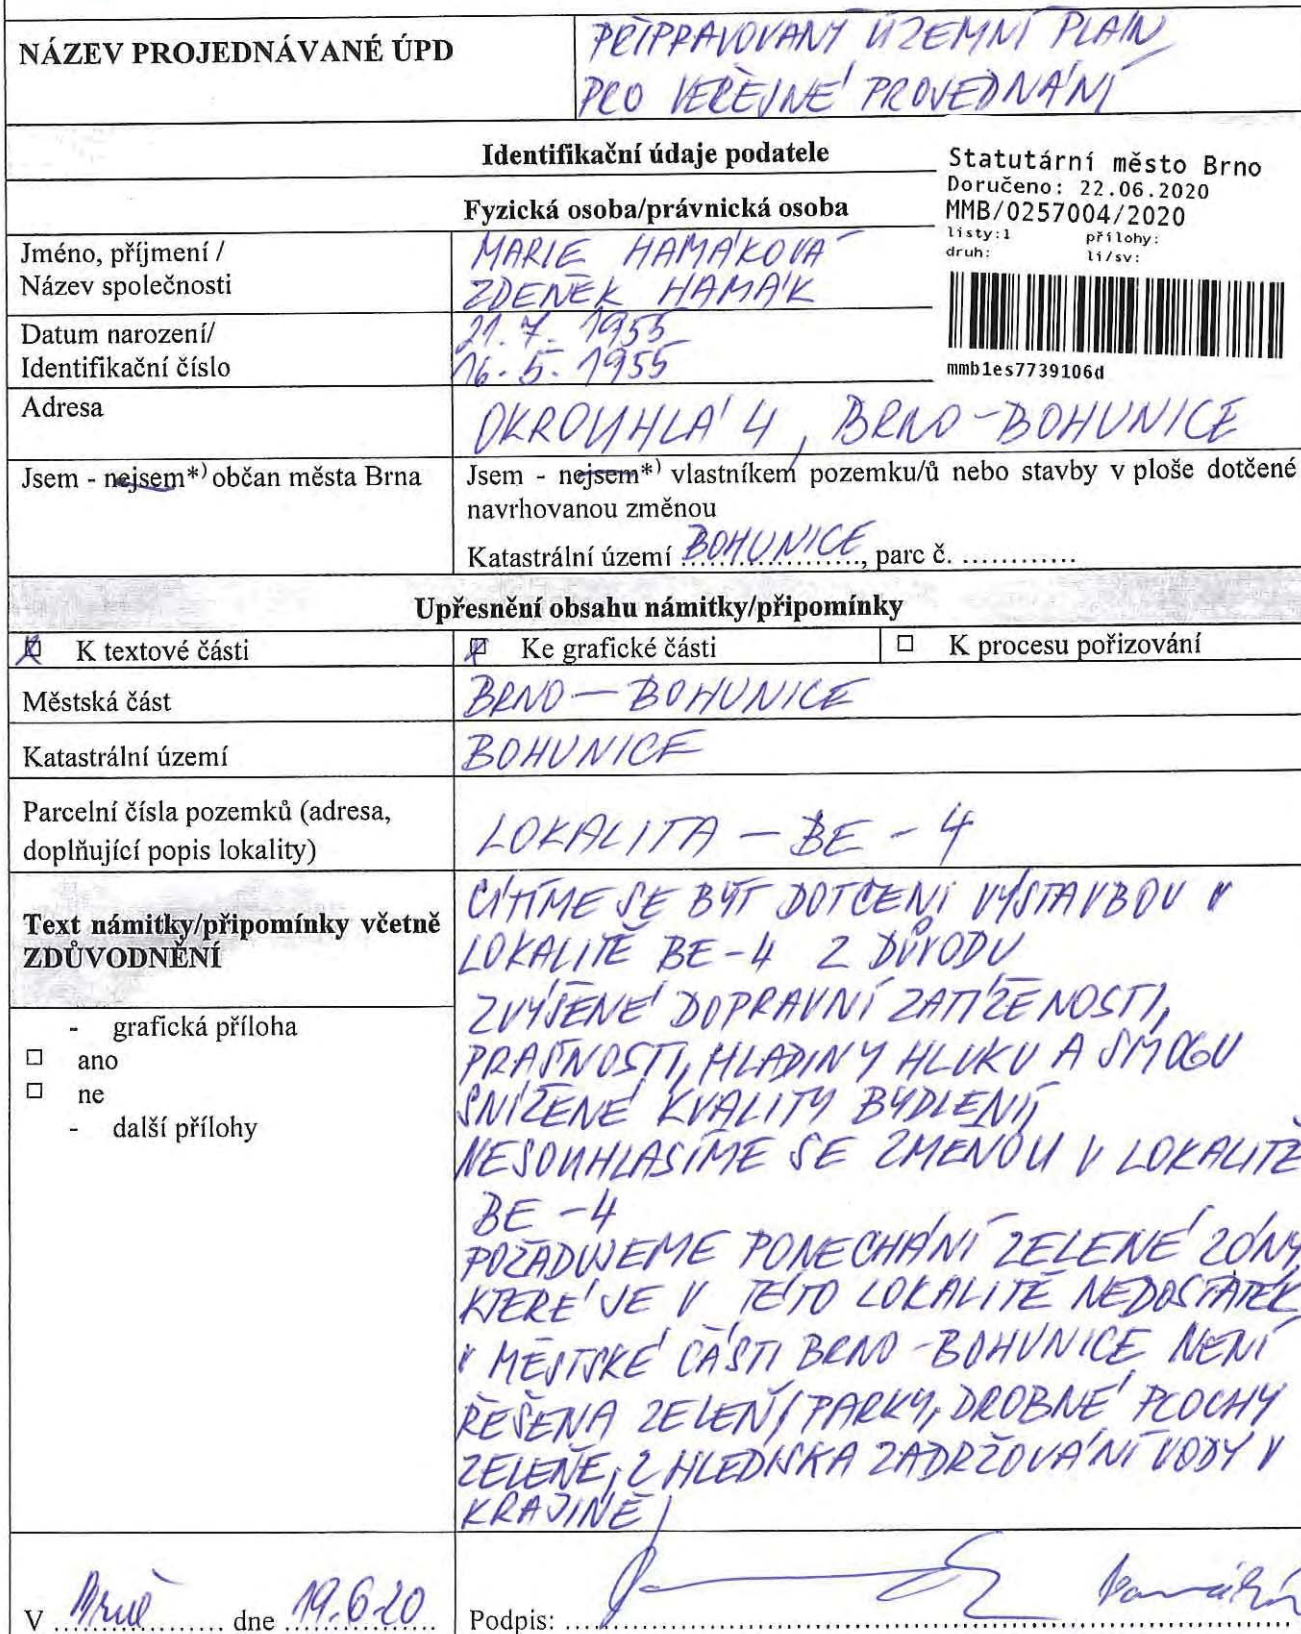 NÁZEV PROJEDNÁVANÉ ÚPD
PŘIPRAVOVANÝ ÚZEMNÍ PLÁN
PRO VEŘEJNÉ PROJEDNÁNÍ
Identifikační údaje podatele
Statutární město Brno
Doručeno: 22.06.2020
MMB/0257004/2020
listy:1 přílohy:
druh: li/sv:
mmb1es7739106d
Fyzická osoba/právnická osoba
Jméno, příjmení /
Název společnosti
MARIE HAMÁKOVÁ
ZDENĚK HAMÁK
Datum narození/
Identifikační číslo
21. 7. 1955
16. 5. 1955
Adresa
OKROUHLÁ 4, BRNO-BOHUNICE
Jsem - nejsem*) občan města Brna
Jsem - nejsem*) vlastníkem pozemku/ů nebo stavby v ploše dotčené
navrhovanou změnou
Katastrální území BOHUNICE, parc č. ............
Upřesnění obsahu námitky/připomínky
☒ K textové části
☒ Ke grafické části
□ K procesu pořizování
Městská část
BRNO – BOHUNICE
Katastrální území
BOHUNICE
Parcelní čísla pozemků (adresa,
doplňující popis lokality)
LOKALITA – BE - 4
Text námitky/připomínky včetně
ZDŮVODNĚNÍ
- grafická příloha
□ ano
□ ne
- další přílohy
CÍTÍME SE BÝT DOTČENI VÝSTAVBOU V
LOKALITĚ BE-4 Z DŮVODU
ZVÝŠENÉ DOPRAVNÍ ZATÍŽENOSTI,
PRAŠNOSTI, HLADINY HLUKU A SMOGU
SNÍŽENÉ KVALITY BYDLENÍ,
NESOUHLASÍME SE ZMĚNOU V LOKALITĚ
BE -4
POŽADUJEME PONECHÁNÍ ZELENÉ ZÓNY,
KTERÉ JE V TÉTO LOKALITĚ NEDOSTATEK,
V MĚSTSKÉ ČÁSTI BRNO-BOHUNICE NENÍ
ŘEŠENA ZELEŇ/PARKY, DROBNÉ PLOCHY
ZELENĚ, Z HLEDISKA ZADRŽOVÁNÍ VODY V
KRAJINĚ/
V Brně dne 19.6.20
Podpis: Hamáková